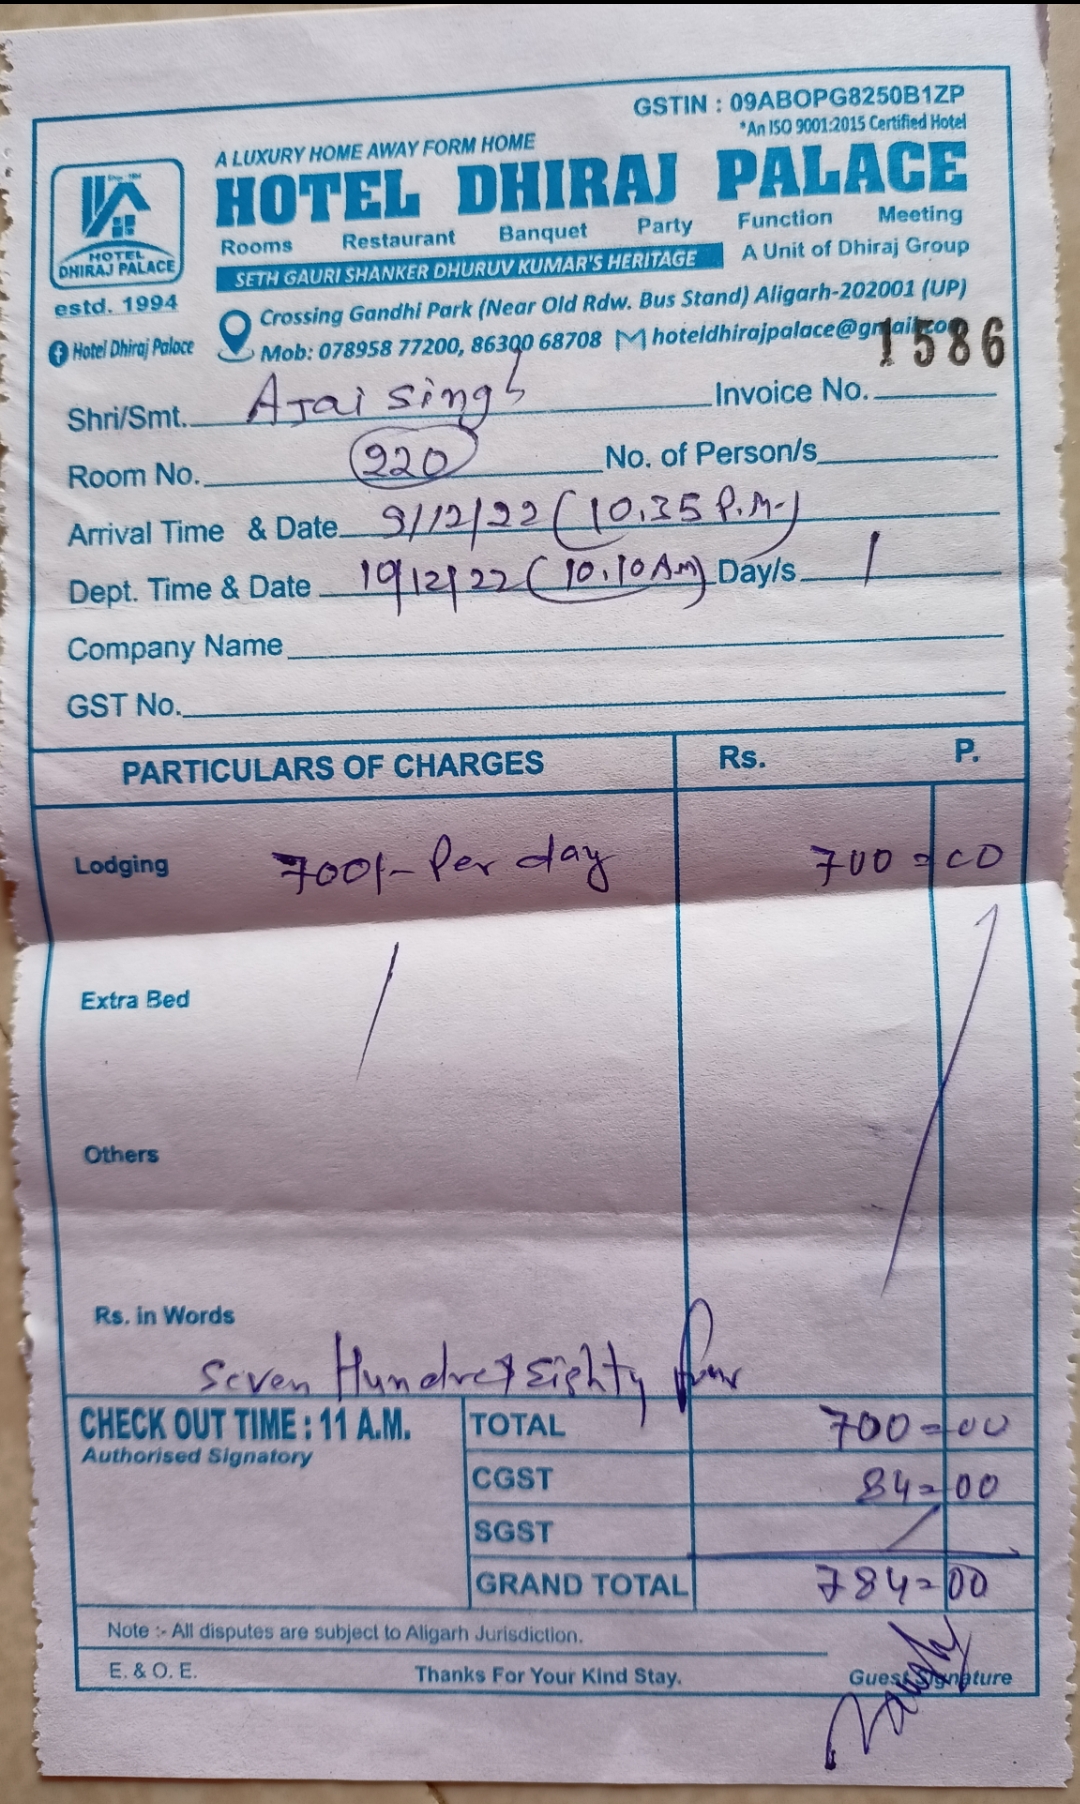 GSTIN : 09ABOPG8250B1ZP
*An ISO 9001:2015 Certified Hotel
A LUXURY HOME AWAY FORM HOME
HOTEL DHIRAJ PALACE
Rooms Restaurant Banquet Party Function Meeting
SETH GAURI SHANKER DHURUV KUMAR'S HERITAGE A Unit of Dhiraj Group
HOTEL
DHIRAJ PALACE
estd. 1994
Hotel Dhiraj Palace
Crossing Gandhi Park (Near Old Rdw. Bus Stand) Aligarh-202001 (UP)
Mob: 078958 77200, 86300 68708 hoteldhirajpalace@gmail.com
Shri/Smt. Ajai Singh Invoice No. 1586
Room No. 220 No. of Person/s
Arrival Time & Date 9/12/22 (10.35 P.M.)
Dept. Time & Date 10/12/22 (10.10 AM) Day/s 1
Company Name
GST No.
PARTICULARS OF CHARGES Rs. P.
Lodging 700/- Per day 700=00
Extra Bed
Others
Rs. in Words
Seven Hundred Eighty four
CHECK OUT TIME : 11 A.M.
Authorised Signatory
TOTAL 700=00
CGST 84=00
SGST
GRAND TOTAL 784=00
Note :- All disputes are subject to Aligarh Jurisdiction.
E. & O. E. Thanks For Your Kind Stay. Guest Signature